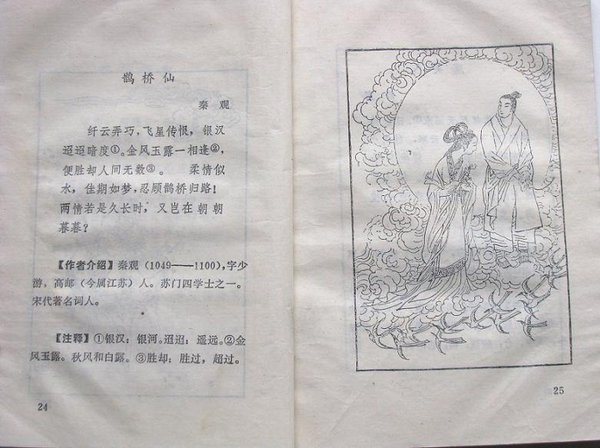 鹊桥仙
秦观
纤云弄巧，飞星传恨，银汉
迢迢暗度①。金风玉露一相逢②，
便胜却人间无数③。　柔情似
水，佳期如梦，忍顾鹊桥归路！
两情若是久长时，又岂在朝朝
暮暮？
【作者介绍】秦观（1049——1100），字少
游，高邮（今属江苏）人。苏门四学士之一。
宋代著名词人。
【注释】①银汉：银河。迢迢：遥远。②金
风玉露。秋风和白露。③胜却：胜过，超过。
24
25